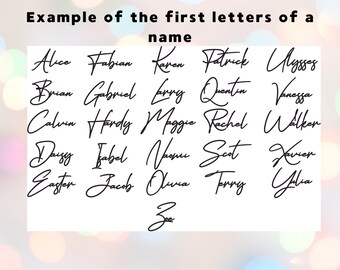 Example of the first letters of a
name
Alice Fabian Karen Patrick Ulysses
Brian Gabriel Larry Quentin Vanessa
Calvin Hardy Maggie Rachel Walker
Daisy Isabel Naomi Scot Xavier
Easter Jacob Olivia Terry Yulia
Zoe